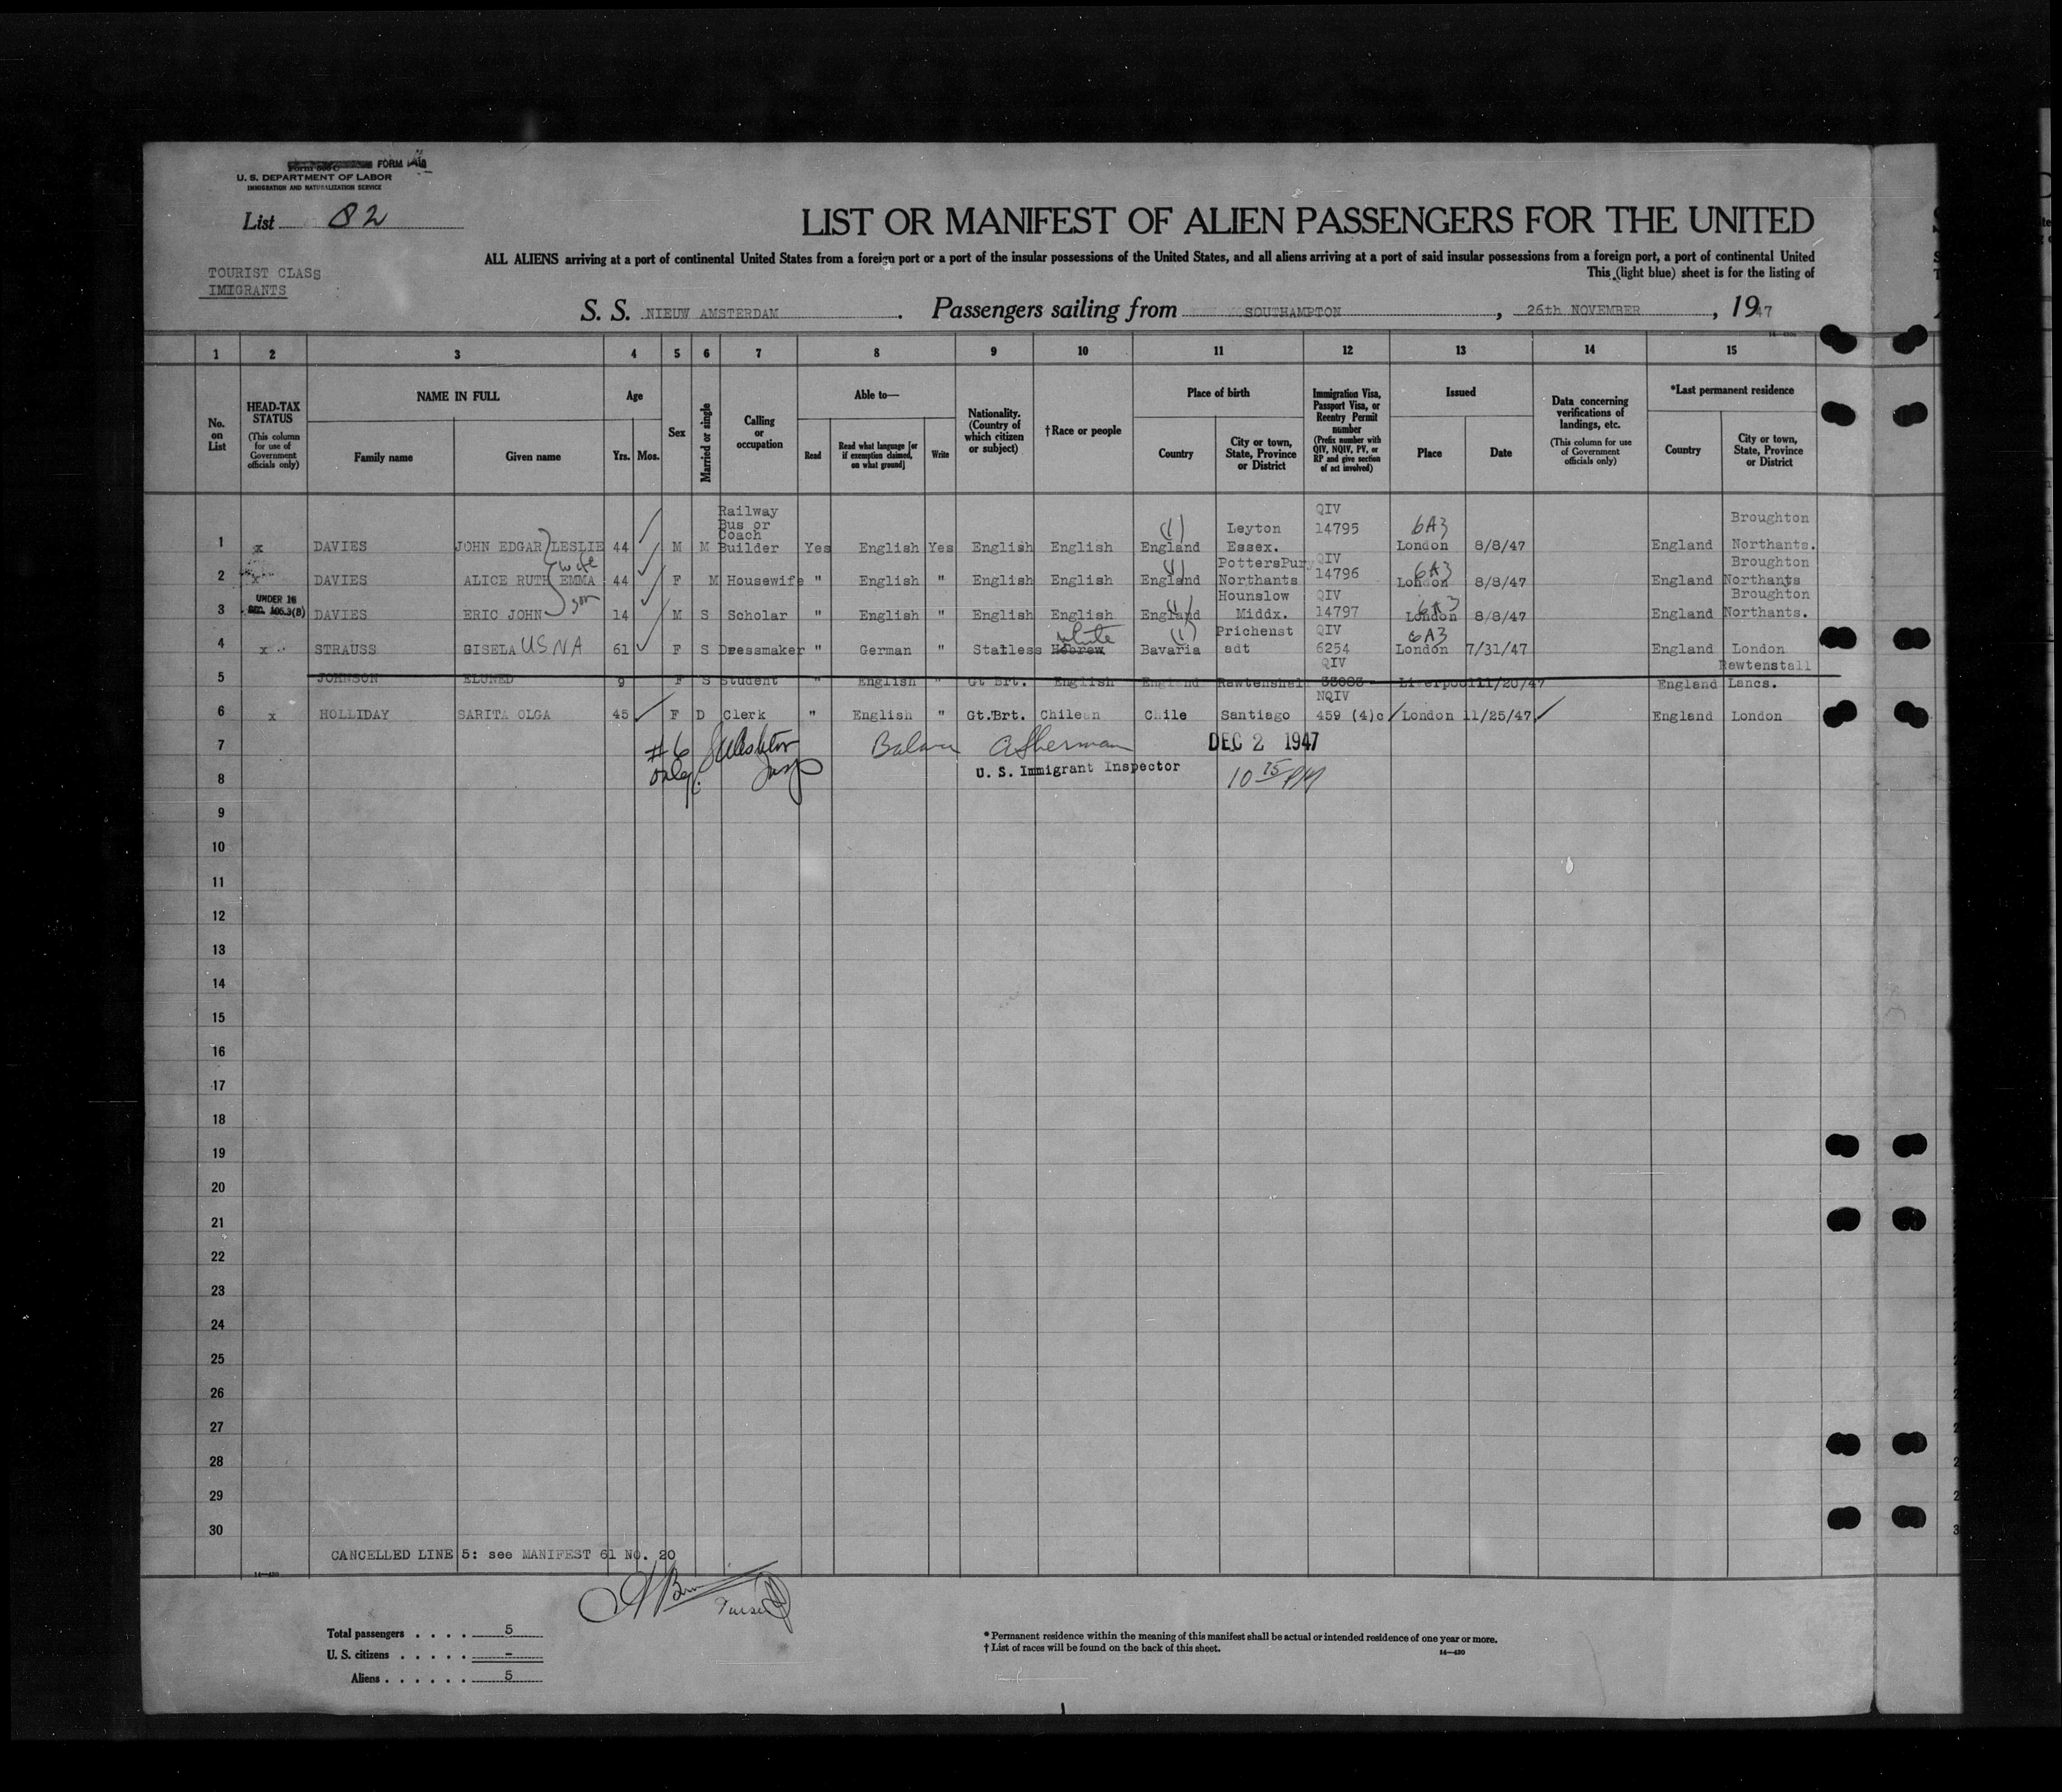 FORM
U. S. DEPARTMENT OF LABOR
IMMIGRATION AND NATURALIZATION SERVICE
List 82
LIST OR MANIFEST OF ALIEN PASSENGERS FOR THE UNITED
ALL ALIENS arriving at a port of continental United States from a foreign port or a port of the insular possessions of the United States, and all aliens arriving at a port of said insular possessions from a foreign port, a port of continental United
This (light blue) sheet is for the listing of
TOURIST CLASS
IMIGRANTS
S. S. NIEUW AMSTERDAM. Passengers sailing from SOUTHAMPTON, 26th NOVEMBER, 1947
1 2 3 4 5 6 7 8 9 10 11 12 13 14 15
No. on List
HEAD-TAX STATUS (This column for use of Government officials only)
NAME IN FULL
Family name Given name
Age
Yrs. Mos.
Sex
Married or single
Calling or occupation
Able to—
Read Read what language [or if exemption claimed, on what ground] Write
Nationality. (Country of which citizen or subject)
†Race or people
Place of birth
Country City or town, State, Province or District
Immigration Visa, Passport Visa, or Reentry Permit number (Prefix number with QIV, NQIV, PV, or RP and give section of act involved)
Issued
Place Date
Data concerning verifications of landings, etc. (This column for use of Government officials only)
*Last permanent residence
Country City or town, State, Province or District
1 x DAVIES JOHN EDGAR LESLIE 44 M M Railway Bus or Coach Builder Yes English Yes English English (1) England Leyton Essex. QIV 14795 6A3 London 8/8/47 England Broughton Northants.
2 x DAVIES ALICE RUTH EMMA wife 44 F M Housewife " English " English English (1) England PottersPury Northants QIV 14796 6A3 London 8/8/47 England Broughton Northants
3 UNDER 16 SEC. 105.3(B) DAVIES ERIC JOHN son 14 M S Scholar " English " English English (1) England Hounslow Middx. QIV 14797 6A3 London 8/8/47 England Broughton Northants.
4 x STRAUSS GISELA USNA 61 F S Dressmaker " German " Statless Hebrew white (1) Bavaria Prichenst adt QIV 6254 6A3 London 7/31/47 England London
5 JOHNSON ELUNED 9 F S Student " English " Gt Brt. English England Rawtenshal QIV Liverpool 11/20/47 England Rawtenstall Lancs.
6 x HOLLIDAY SARITA OLGA 45 F D Clerk " English " Gt.Brt. Chilean Chile Santiago NQIV 459 (4)c London 11/25/47 England London
7 #6 Balance A Sherman DEC 2 1947
8 only. Insp U. S. Immigrant Inspector 10 15 PM
9
10
11
12
13
14
15
16
17
18
19
20
21
22
23
24
25
26
27
28
29
30
CANCELLED LINE 5: see MANIFEST 61 No. 20
14—430
Purser
Total passengers . . . . 5
U. S. citizens . . . . . -
Aliens . . . . . . 5
* Permanent residence within the meaning of this manifest shall be actual or intended residence of one year or more.
† List of races will be found on the back of this sheet.
14—430